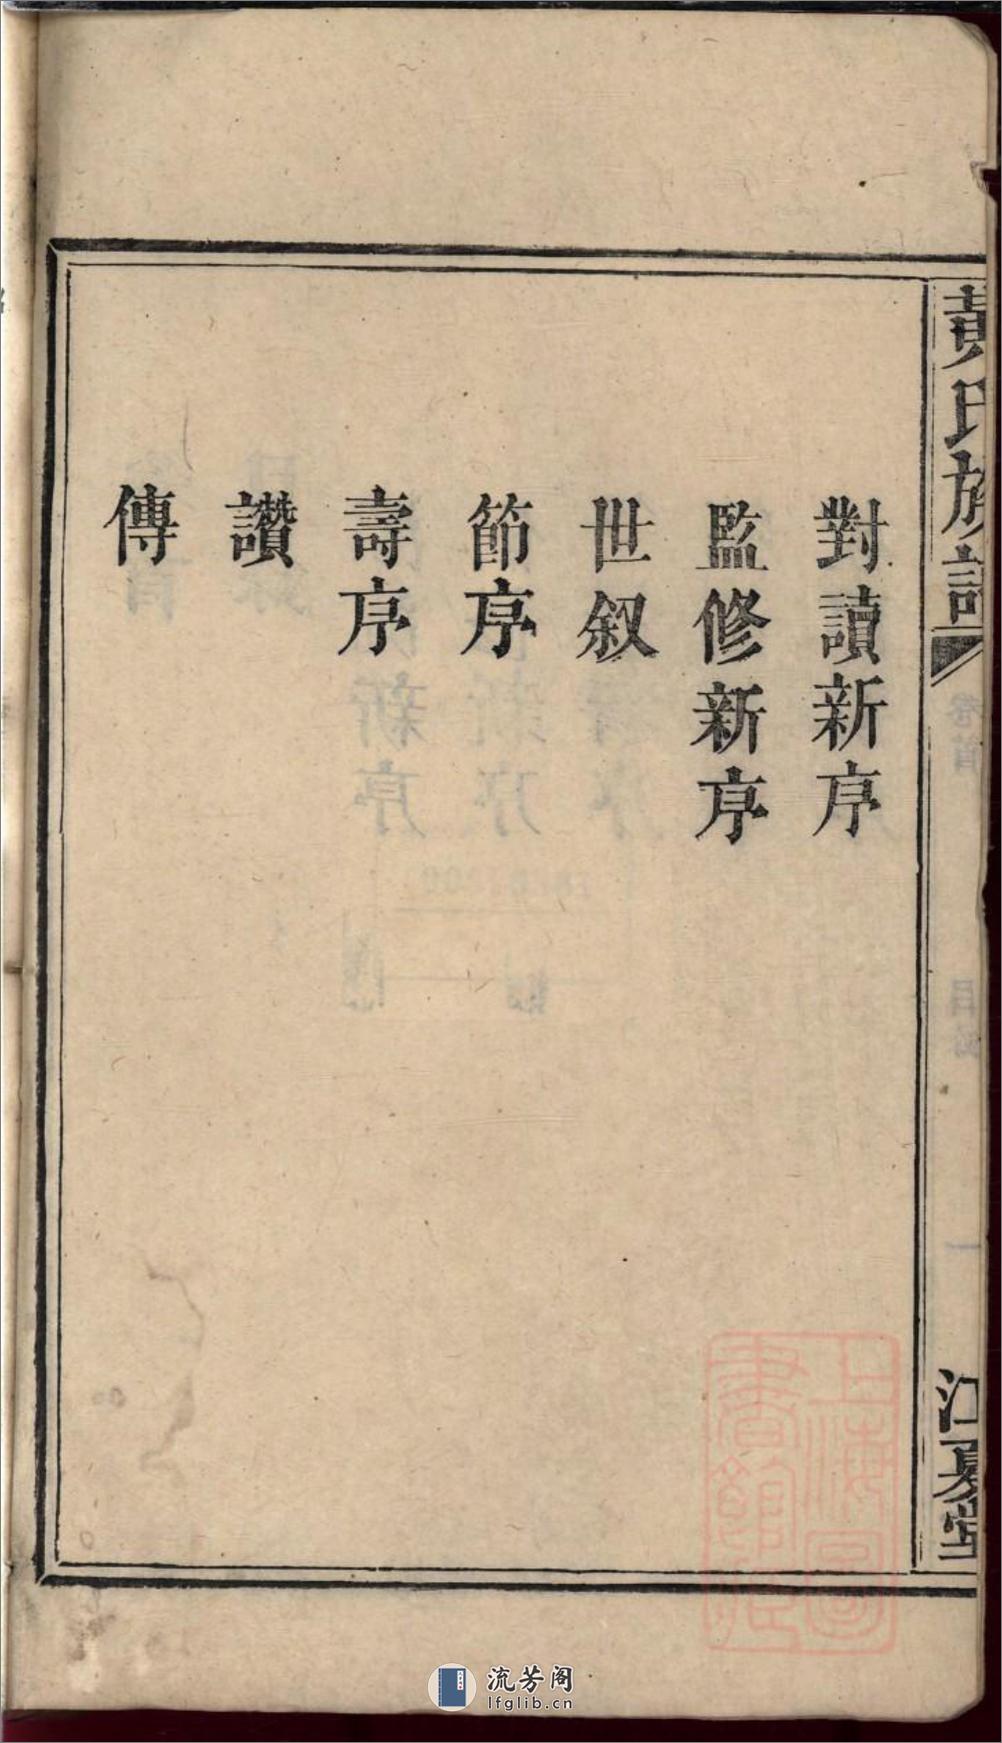 黃氏族譜
江夏堂
對讀新序
監修新序
世叙
節序
壽序
讚
傳
上海圖
書館藏
流芳阁
lfglib.cn